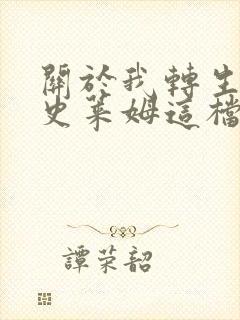 關於我轉生
史萊姆這檔
譚荣韶